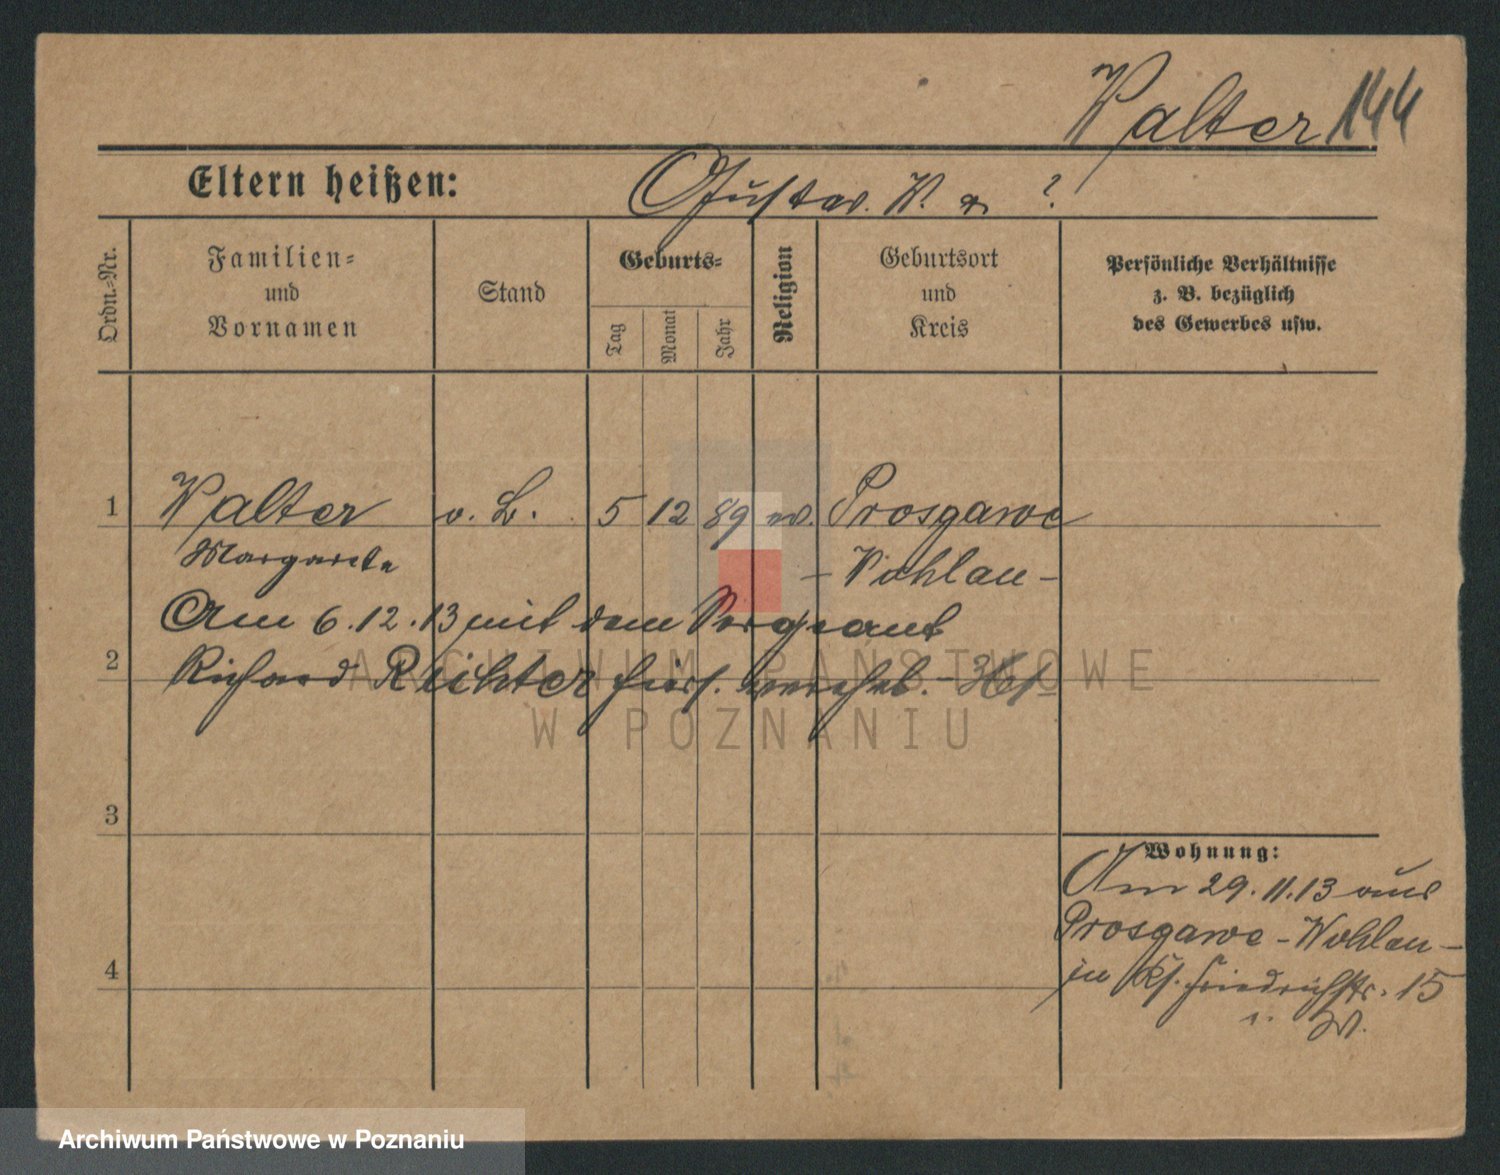 Walter 144
Eltern heißen: Gustav. W. u ?
Ordn.-Nr.
Familien-
und
Vornamen
Stand
Geburts-
Tag
Monat
Jahr
Religion
Geburtsort
und
Kreis
Persönliche Verhältnisse
z. B. bezüglich
des Gewerbes usw.
1 Walter o. B. 5 12 89 ev. Prosgawe
Margarete - Wohlau -
Am 6.12.13 mit dem Sergeant
2 Richard Richter hier verehel.
ARCHIWUM PAŃSTWOWE
W POZNANIU
3
Wohnung:
Am 29.11.13 aus
Prosgawe - Wohlau -
4 in Friedrichstr. 15
W.
Archiwum Państwowe w Poznaniu